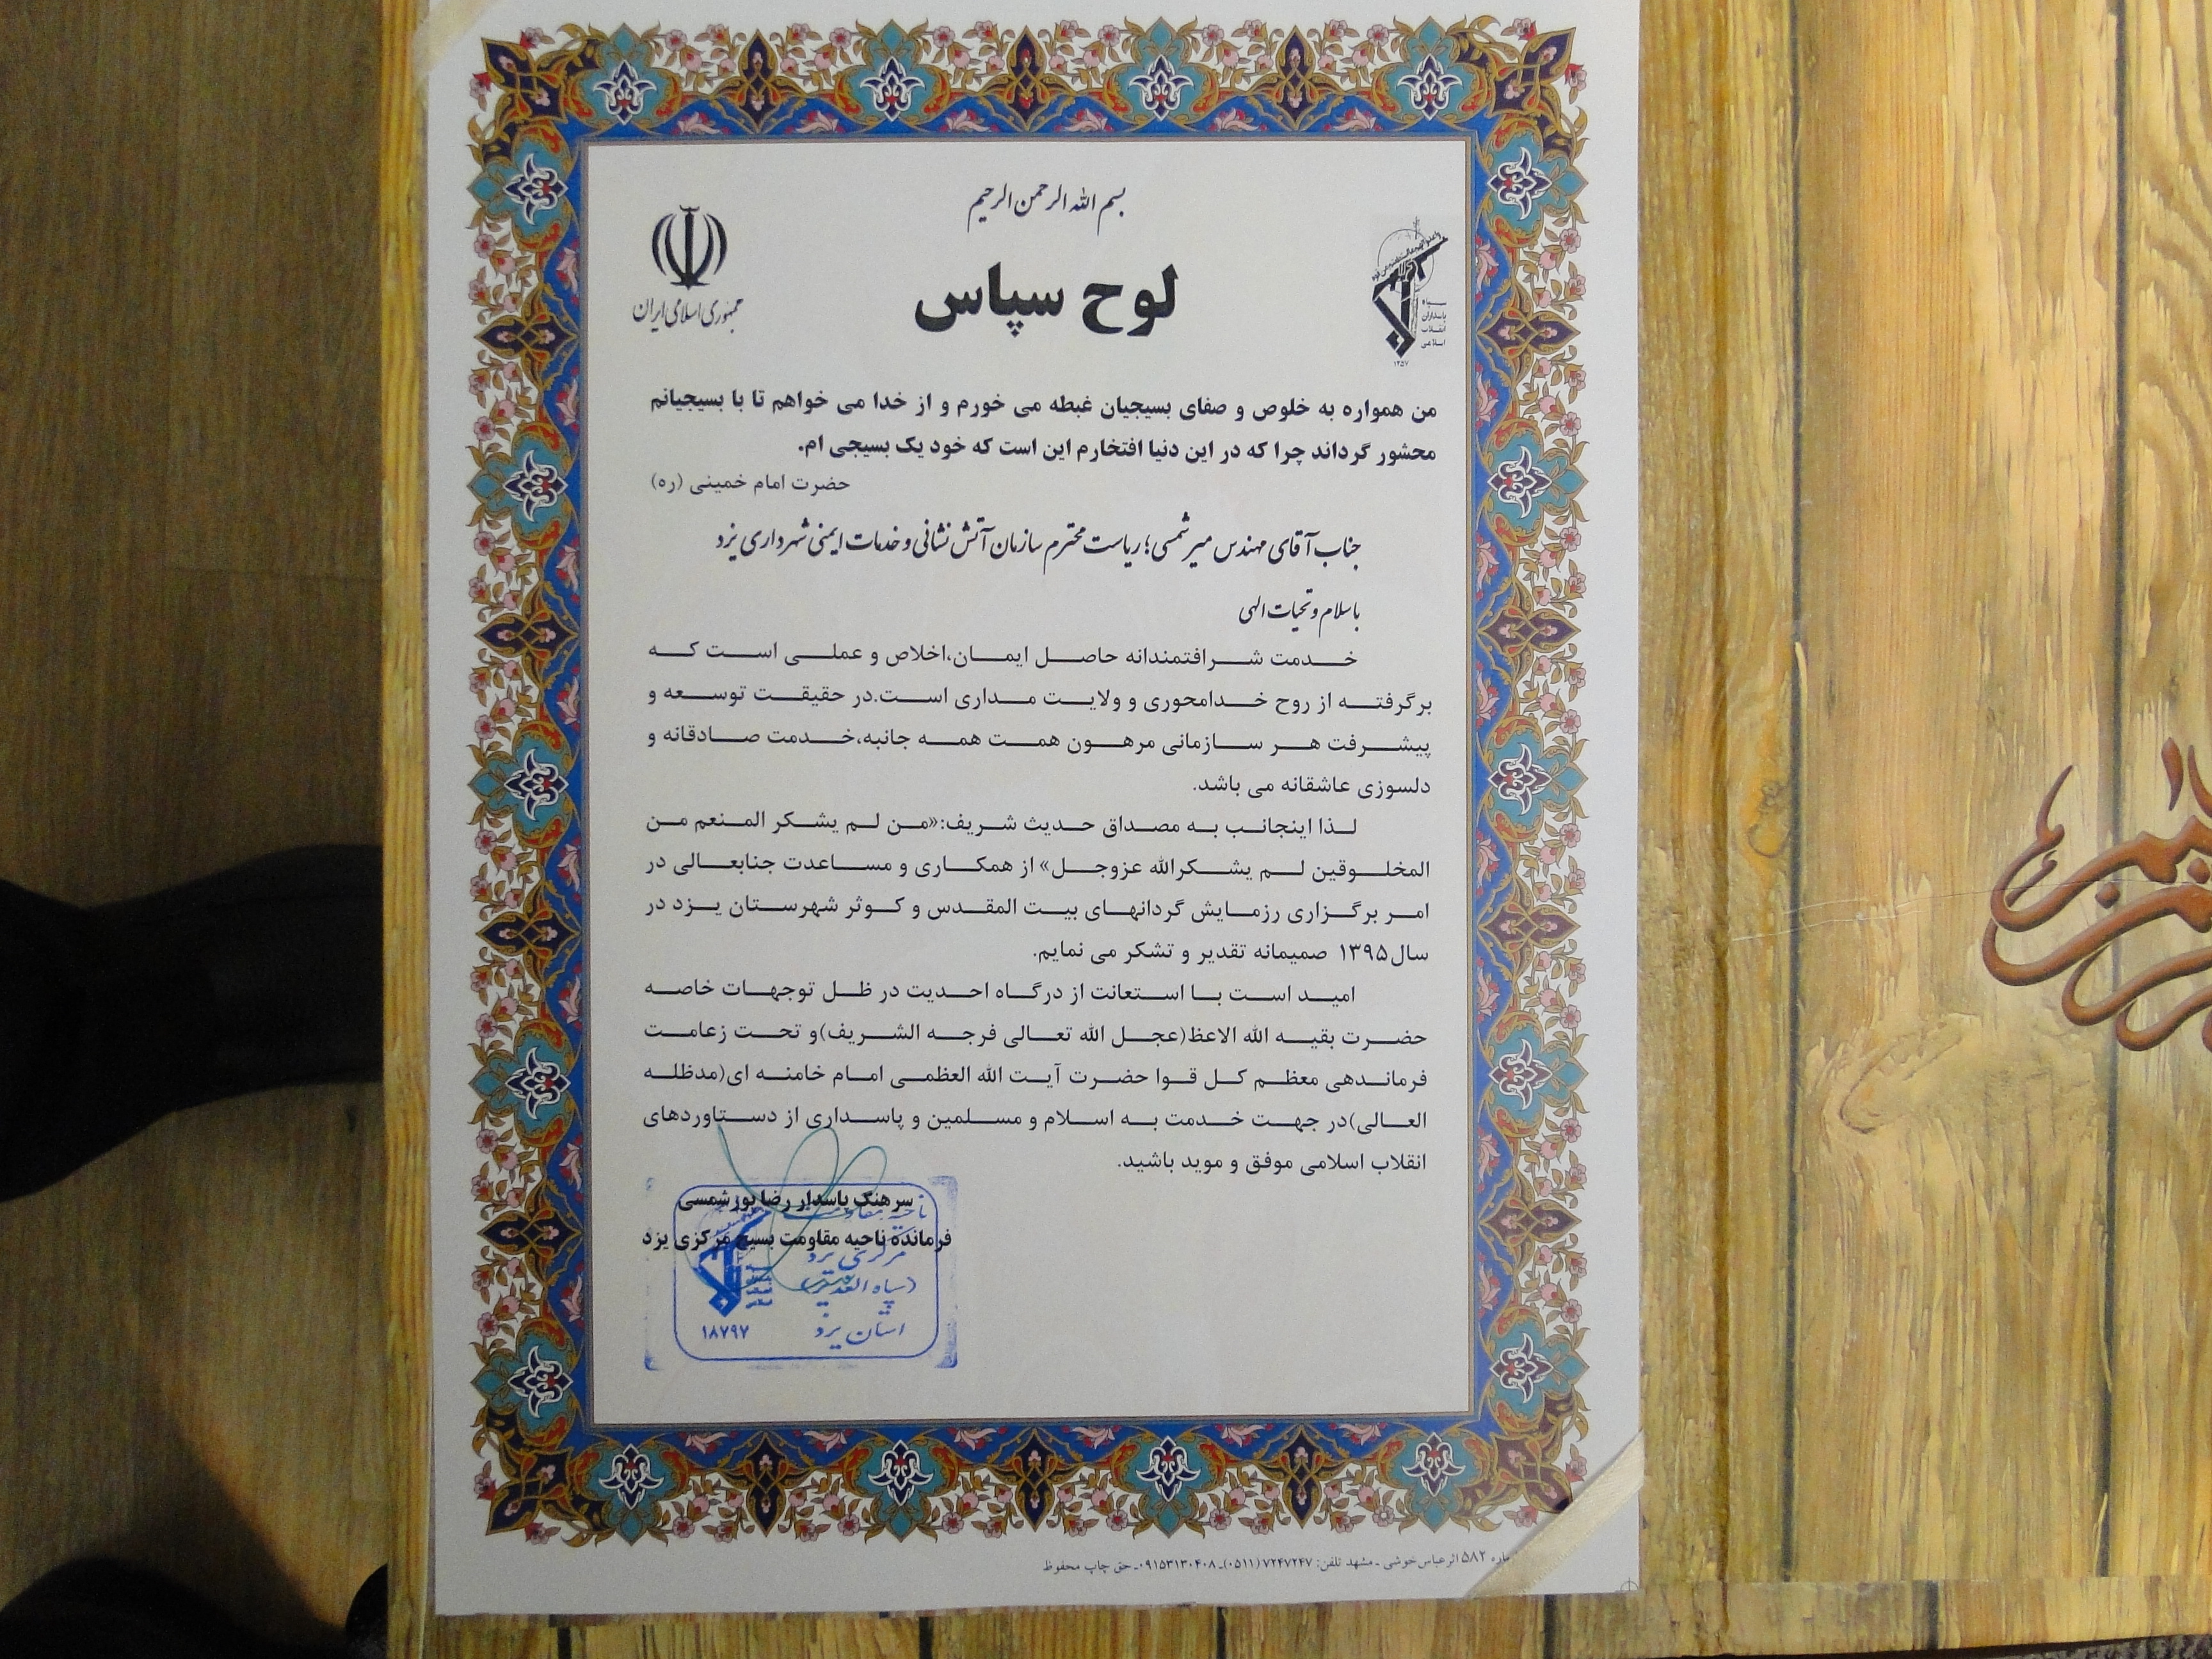 بسم الله الرحمن الرحیم
جمهوری اسلامی ایران
لوح سپاس
سپاه
پاسداران
انقلاب
اسلامی
۱۳۵۷
من همواره به خلوص و صفای بسیجیان غبطه می خورم و از خدا می خواهم تا با بسیجیانم
محشور گرداند چرا که در این دنیا افتخارم این است که خود یک بسیجی ام.
حضرت امام خمینی (ره)
جناب آقای مهندس میرشمسی؛ ریاست محترم سازمان آتش نشانی و خدمات ایمنی شهرداری یزد
باسلام و تحیات الهی
خدمت شرافتمندانه حاصل ایمان،اخلاص و عملی است که
برگرفته از روح خدامحوری و ولایت مداری است.در حقیقت توسعه و
پیشرفت هر سازمانی مرهون همت همه جانبه،خدمت صادقانه و
دلسوزی عاشقانه می باشد.
لذا اینجانب به مصداق حدیث شریف:«من لم یشکر المنعم من
المخلوقین لم یشکرالله عزوجل» از همکاری و مساعدت جنابعالی در
امر برگزاری رزمایش گردانهای بیت المقدس و کوثر شهرستان یزد در
سال۱۳۹۵ صمیمانه تقدیر و تشکر می نمایم.
امید است با استعانت از درگاه احدیت در ظل توجهات خاصه
حضرت بقیه الله الاعظ(عجل الله تعالی فرجه الشریف)و تحت زعامت
فرماندهی معظم کل قوا حضرت آیت الله العظمی امام خامنه ای(مدظله
العالی)در جهت خدمت به اسلام و مسلمین و پاسداری از دستاوردهای
انقلاب اسلامی موفق و موید باشید.
سرهنگ پاسدار رضا پورشمسی
فرمانده ناحیه مقاومت بسیج مرکزی یزد
ناحیه مقاومت بسیج
مرکزی یزد
(سپاه الغدیر)
استان یزد
۱۸۷۹۷
۵۸۲ اثر عباس خوشی ـ مشهد تلفن: ۷۲۴۷۲۴۷ (۰۵۱۱)ـ ۰۹۱۵۳۱۳۰۴۰۸ـ حق چاپ محفوظ